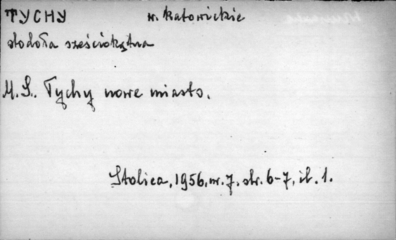 TYCHY w. katowickie
stodoła sześciokątna
M.S. Tychy nowe miasto.
Stolica, 1956, nr. 7, str. 6-7, il. 1.